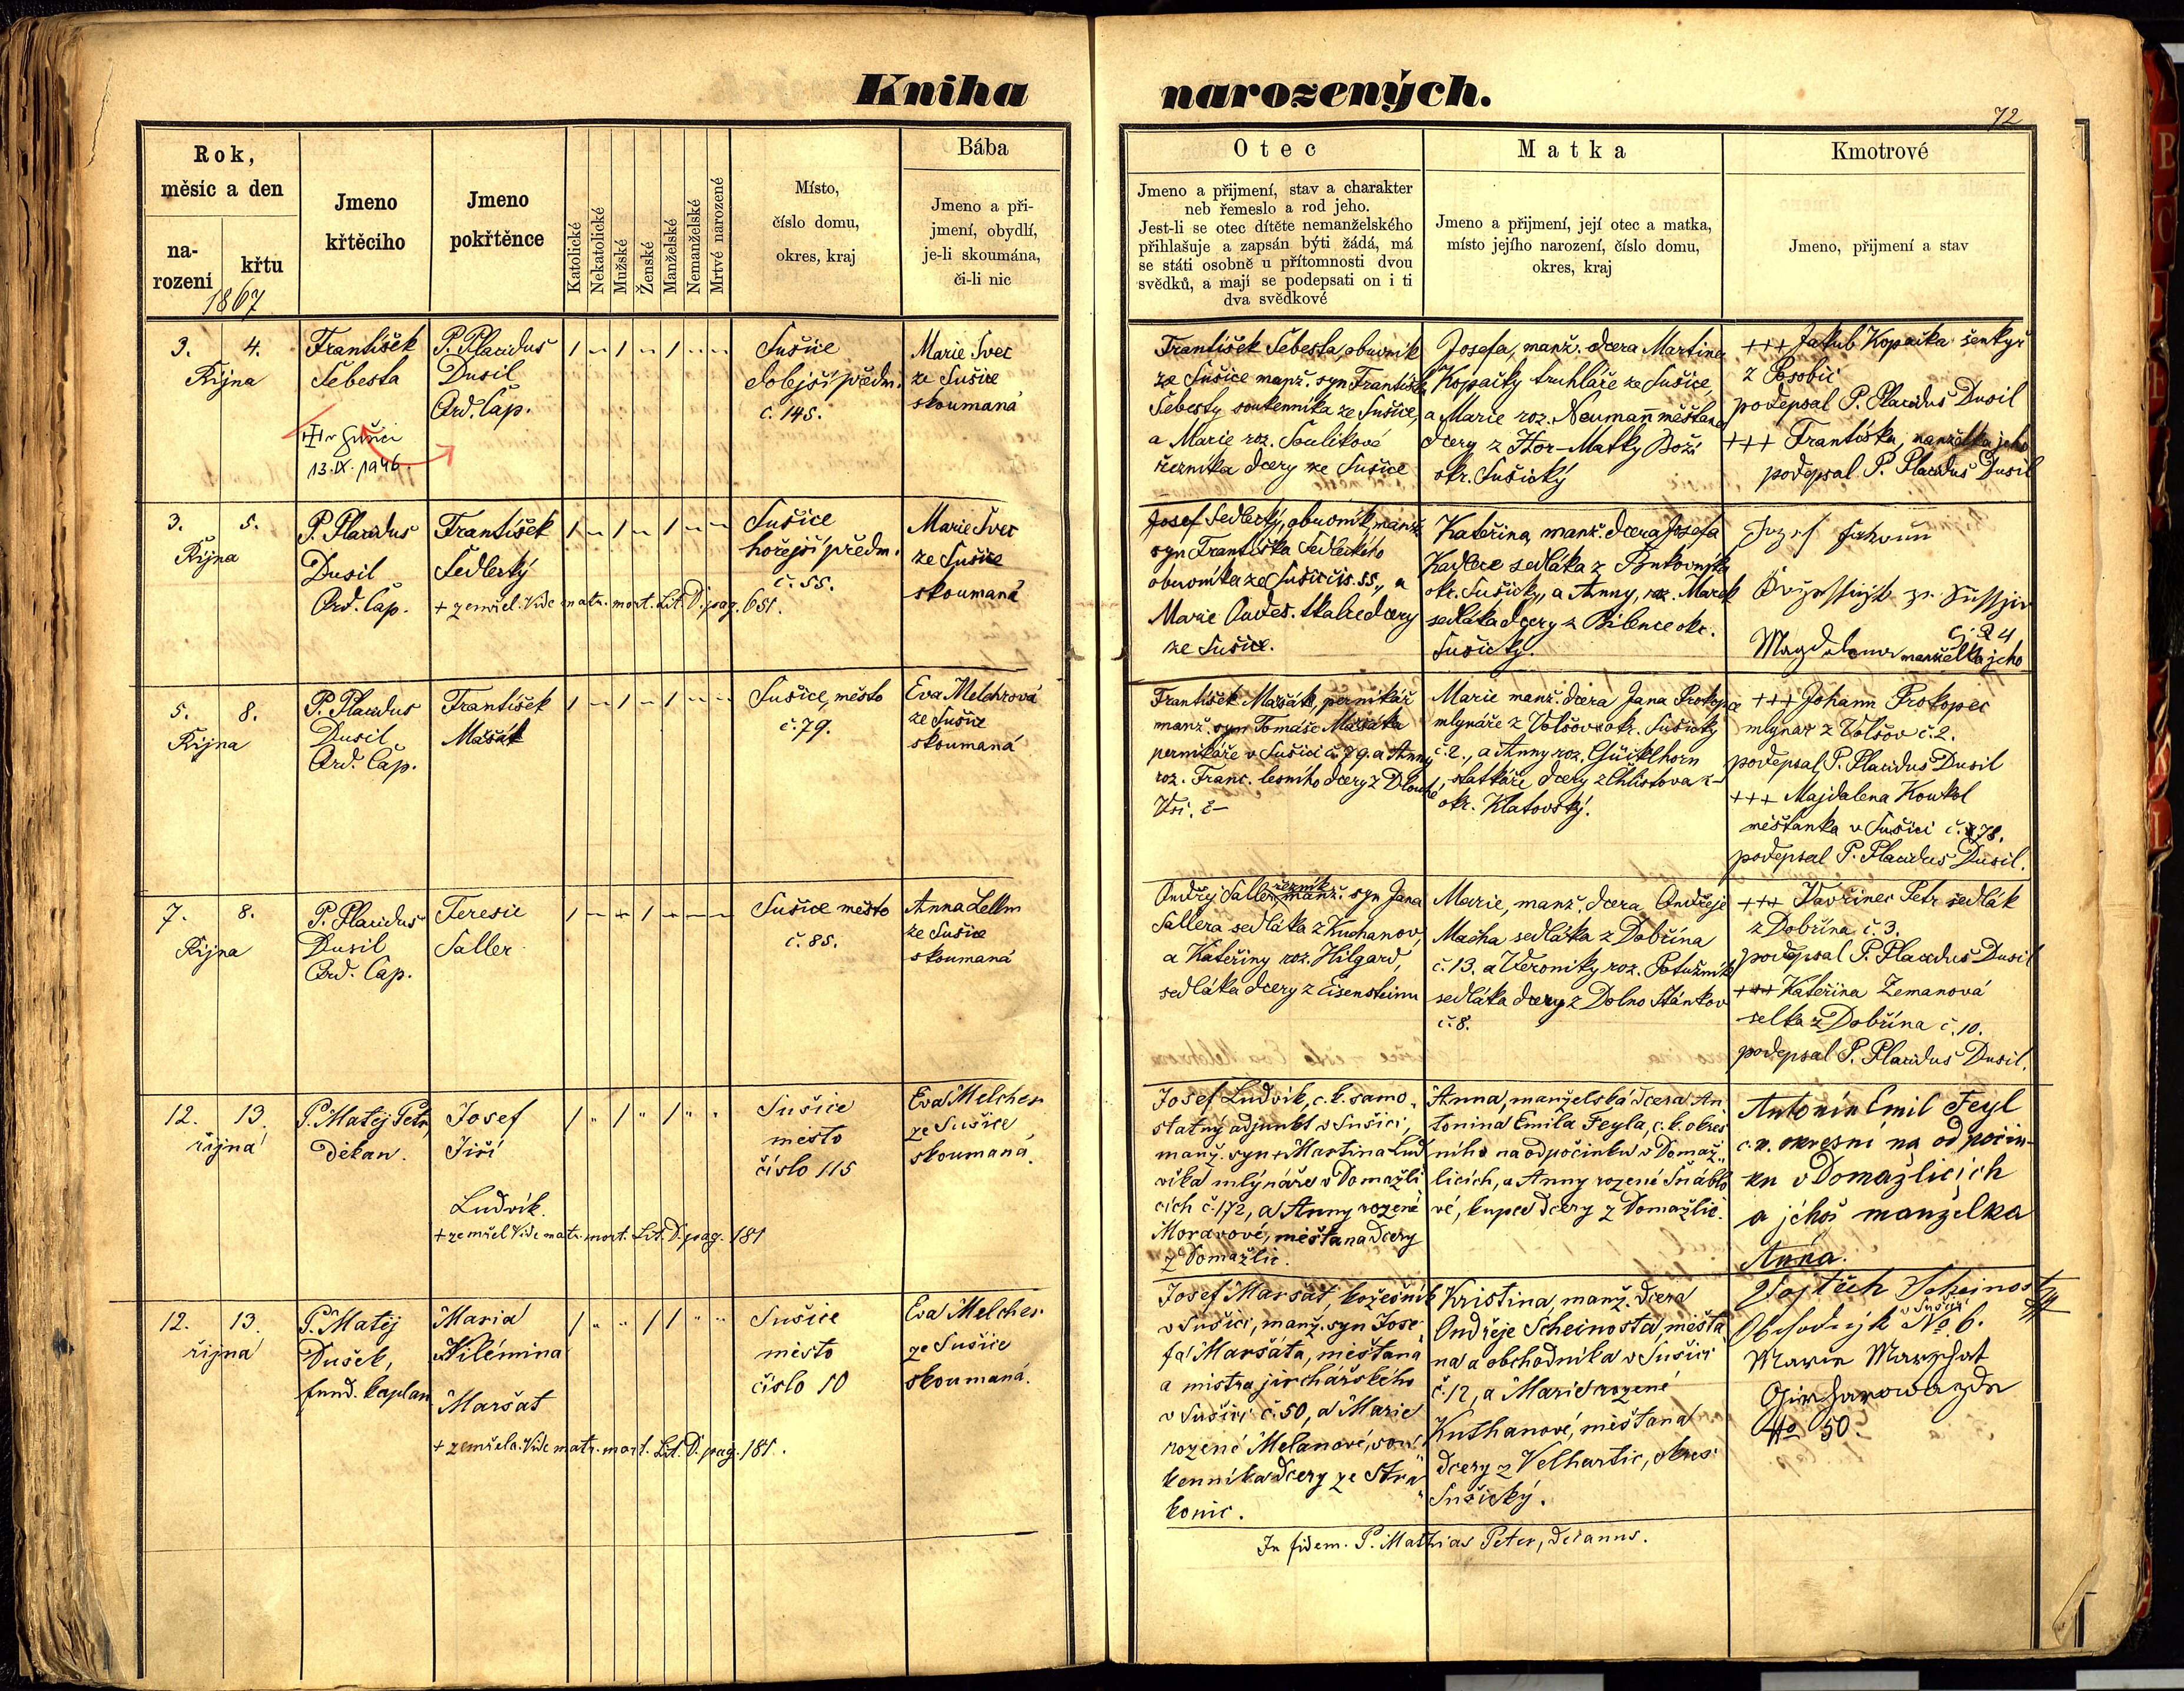 Kniha narozených.
72
Rok,
měsíc a den
na-
rození
křtu
1867
Jmeno
křtěcího
Jmeno
pokřtěnce
Katolické
Nekatolické
Mužské
Ženské
Manželské
Nemanželské
Mrtvé narozené
Místo,
číslo domu,
okres, kraj
Bába
Jmeno a při-
jmení, obydlí,
je-li skoumána,
či-li nic
Otec
Jmeno a přijmení, stav a charakter
neb řemeslo a rod jeho.
Jest-li se otec dítěte nemanželského
přihlašuje a zapsán býti žádá, má
se státi osobně u přítomnosti dvou
svědků, a mají se podepsati on i ti
dva svědkové
Matka
Jmeno a přijmení, její otec a matka,
místo jejího narození, číslo domu,
okres, kraj
Kmotrové
Jmeno, přijmení a stav
3. 4.
Října
František
Šebesta
13. IX. 1946.
P. Placidus
Dusil
Ord. Cap.
Sušice
Dolejší předm.
č. 145.
Marie Švec
ze Sušice
skoumaná
František Šebesta, obuvník
ze Sušice manž. syn Františka
Šebesty soukenníka ze Sušice,
a Marie roz. Soulikové
řezníka dcery ze Sušice
Josefa, manž. dcera Martina
Kopačky truhláře ze Sušice,
a Marie roz. Neumann měšťana
dcery z Hor-Matky Boží
okr. Sušický
+++ Jakub Kopačka šenkýř
z
podepsal P. Placidus Dusil
+++ Františka, manželka jeho
podepsal P. Placidus Dusil
3. 5.
Října
P. Placidus
Dusil
Ord. Cap.
František
Sedlecký
+ zemřel. Vide matr. mort. Lit. D. pag. 651.
Sušice
hořejší předm.
č. 55.
Marie Švec
ze Sušice
skoumaná
Josef Sedlecký, obuvník, manž.
syn Františka Sedleckého
obuvníka ze Sušice čis. 55, a
Marie Ondes. tkalce dcery
ze Sušice.
Kateřina, manž. dcera Josefa
Kadlece sedláka z
okr. Sušický, a Anny, roz. Marek
sedláka dcery z Bilence okr.
Sušický.
Jozef
Magdalena manželka jeho
5. 8.
Října
P. Placidus
Dusil
Ord. Cap.
František
Mašák
Sušice, město
č. 79.
Eva Melchrová
ze Sušice
skoumaná
František Mašák, pernikář
manž. syn Tomáše Mašáka
pernikáře v Sušici č. 79. a Anny
roz. Franc. lesního dcery z Dlouhé
Vsi. č —
Marie manž. dcera Jana Prokopce
mlynáře z Volšov okr. Sušický
č. 2., a Anny roz.
statkáře dcery z Chlistova č —
okr. Klatovský.
+++ Johann Prokopec
mlynař z Volšov č. 2.
podepsal P. Placidus Dusil
+++ Majdalena Koukol
měšťanka v Sušici č. 78.
podepsal P. Placidus Dusil.
7. 8.
Října
P. Placidus
Dusil
Ord. Cap.
Teresie
Saller
Sušice město
č. 85.
Anna Lellm
ze Sušice
skoumaná
Ondřej Saller řezník manž. syn Jana
Sallera sedláka z Kuchanov,
a Kateřiny roz. Hilgard,
sedláka dcery z Eisensteinu
Marie, manž. dcera Ondřeje
Macha sedláka z Dobřína
č. 13. a Veroniky roz. Potužník
sedláka dcery z Dolno Stánkov
č. 8.
+++ Vavřinec Petr sedlák
z Dobřína č. 3.
podepsal P. Placidus Dusil
+++ Kateřina Zemanová
selka z Dobřína č. 10.
podepsal P. Placidus Dusil.
12. 13.
října
P. Matěj Petr,
děkan.
Josef
Jiří
Ludvík.
+ zemřel Vide matr. mort. Lit. D. pag. 181
Sušice
město
číslo 115
Eva Melcher
ze Sušice,
skoumaná.
Josef Ludvík, c. k. samo-
statný adjunkt v Sušici,
manž. syn Martina Lud-
víka mlýnáře v Domažli-
cích č. 172, a Anny rozené
Moravové, měšťana dcery
z Domažlic.
Anna, manželská dcera An-
tonína Emila Feyla, c. k. okres-
ního na odpočinku v Domaž-
licích, a Anny rozené Šnáblo-
vé, kupce dcery z Domažlic.
Antonín Emil Feyl
c. k. okresní na odpočin-
ku v Domažlicích
a jehož manželka
Anna.
12. 13.
října
P. Matěj
Dušek,
fund. kaplan
Maria
Vilémina
Maršat
+ zemřela. Vide matr. mort. Lit. D. pag. 181.
Sušice
město
číslo 10
Eva Melcher
ze Sušice
skoumaná.
Josef Maršat, kožešník
v Sušici, manž. syn Jose-
fa Maršáta, měšťana
a mistra jirchářského
v Sušici č. 50, a Marie
rozené Melanové, sou-
kenníka dcery ze Stra-
konic.
Kristina, manž. dcera
Ondřeje Scheinosta, měšťa-
na a obchodníka v Sušici
č. 12, a Marie rozené
Kuthanové, měšťana
dcery z Velhartic, okres
Sušický.
Vojtěch Scheinost
v Sušici
No 6.
Marie Marschat
No 50.
In fidem. P. Mathias Peter, decanus.